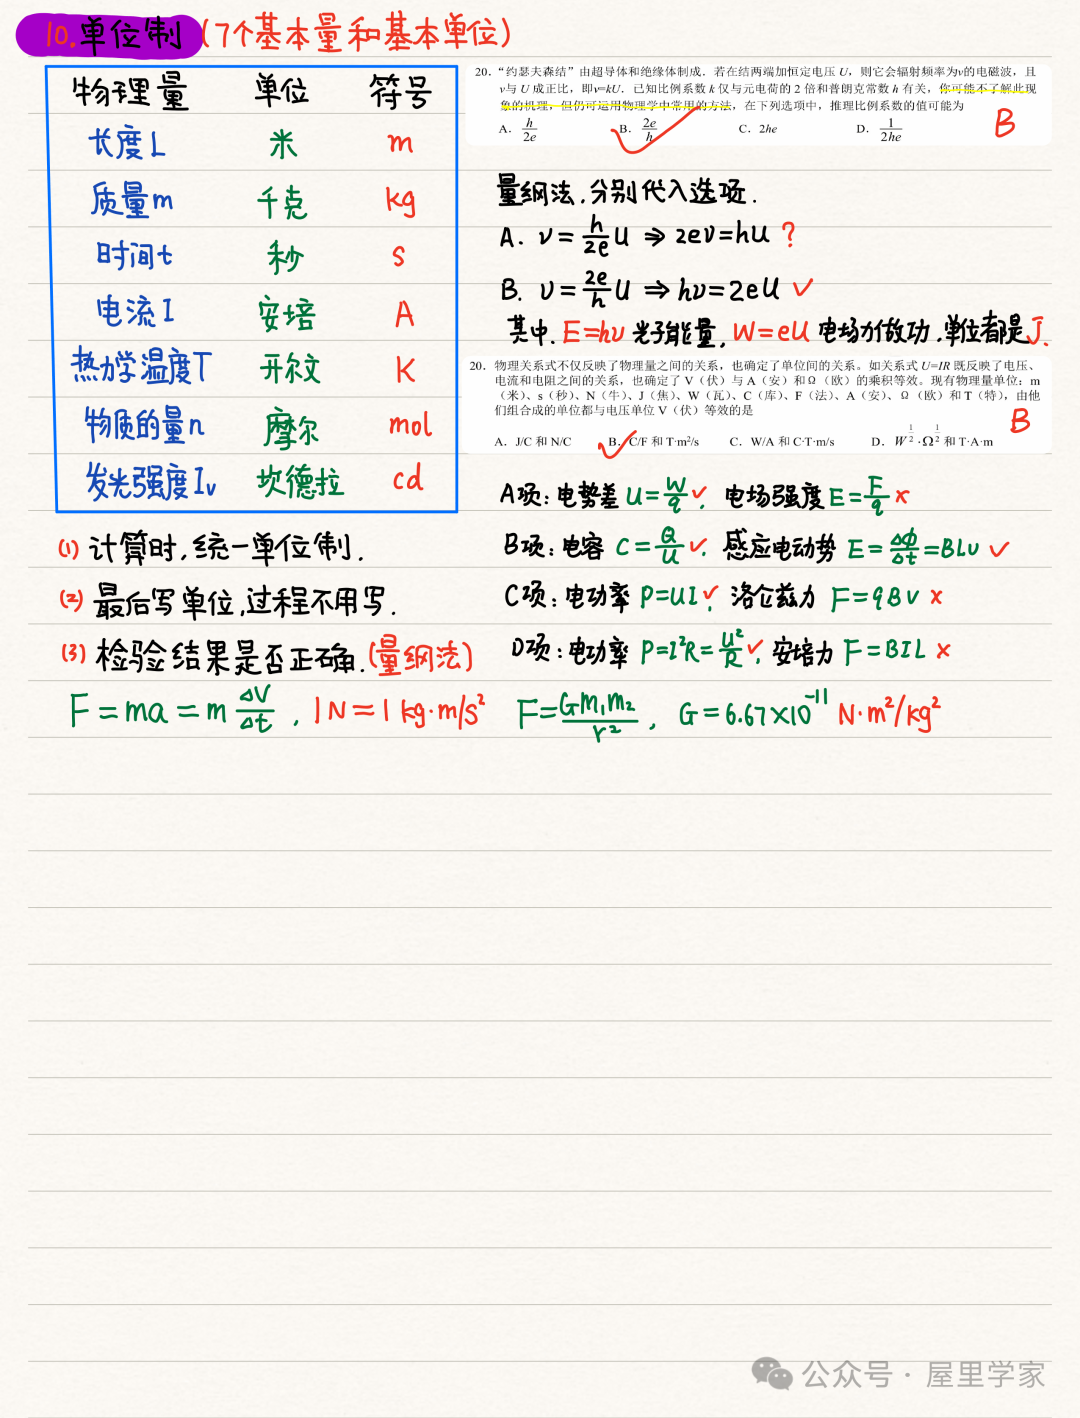 10.单位制(7个基本量和基本单位)
物理量 单位 符号
长度L 米 m
质量m 千克 kg
时间t 秒 s
电流I 安培 A
热力学温度T 开尔文 K
物质的量n 摩尔 mol
发光强度Iv 坎德拉 cd
(1) 计算时,统一单位制.
(2) 最后写单位,过程不用写.
(3) 检验结果是否正确.(量纲法)
F=ma=m ΔV/Δt, 1N=1kg·m/s²
20. “约瑟夫森结”由超导体和绝缘体制成. 若在结两端加恒定电压 U, 则它会辐射频率为ν的电磁波, 且
ν与 U 成正比, 即ν=kU. 已知比例系数 k 仅与元电荷的 2 倍和普朗克常数 h 有关, 你可能不了解此现
象的机理, 但仍可运用物理学中常用的方法, 在下列选项中, 推理比例系数的值可能为
A. h/2e B. 2e/h C. 2he D. 1/2he B
量纲法,分别代入选项.
A. ν=h/2e U ⇒ 2eν=hU ?
B. ν=2e/h U ⇒ hν=2eU ✓
其中 E=hν 光子能量, W=eU 电场力做功,单位都是J.
20. 物理关系式不仅反映了物理量之间的关系, 也确定了单位间的关系。如关系式 U=IR 既反映了电压、
电流和电阻之间的关系, 也确定了 V（伏）与 A（安）和 Ω（欧）的乘积等效。现有物理量单位: m
（米）、s（秒）、N（牛）、J（焦）、W（瓦）、C（库）、F（法）、A（安）、Ω（欧）和 T（特）, 由他
们组合成的单位都与电压单位 V（伏）等效的是 B
A. J/C 和 N/C B. C/F 和 T·m²/s C. W/A 和 C·T·m/s D. W^(1/2)·Ω^(1/2) 和 T·A·m
A项: 电势差 U=W/q ✓, 电场强度 E=F/q ×
B项: 电容 C=Q/U ✓. 感应电动势 E=ΔΦ/Δt=BLv ✓
C项: 电功率 P=UI ✓, 洛仑兹力 F=qBV ×
D项: 电功率 P=I²R=U²/R ✓, 安培力 F=BIL ×
F=Gm₁m₂/r², G=6.67×10⁻¹¹ N·m²/kg²
公众号 · 屋里学家